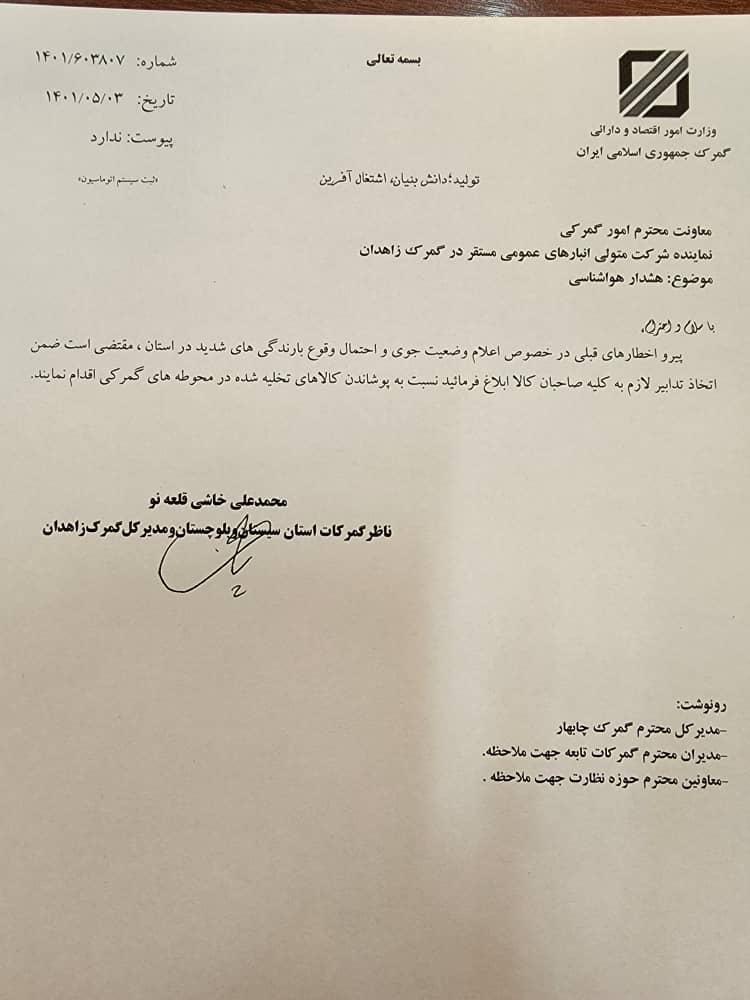 بسمه تعالی
وزارت امور اقتصاد و دارائی
گمرک جمهوری اسلامی ایران
شماره: ۱۴۰۱/۶۰۳۸۰۷
تاریخ: ۱۴۰۱/۰۵/۰۳
پیوست: ندارد
«ثبت سیستم اتوماسیون»
تولید؛دانش بنیان، اشتغال آفرین
معاونت محترم امور گمرکی
نماینده شرکت متولی انبارهای عمومی مستقر در گمرک زاهدان
موضوع: هشدار هواشناسی
با سلام و احترام،
پیرو اخطارهای قبلی در خصوص اعلام وضعیت جوی و احتمال وقوع بارندگی های شدید در استان ، مقتضی است ضمن
اتخاذ تدابیر لازم به کلیه صاحبان کالا ابلاغ فرمائید نسبت به پوشاندن کالاهای تخلیه شده در محوطه های گمرکی اقدام نمایند.
محمدعلی خاشی قلعه نو
ناظر گمرکات استان سیستان و بلوچستان و مدیر کل گمرک زاهدان
رونوشت:
-مدیر کل محترم گمرک چابهار
-مدیران محترم گمرکات تابعه جهت ملاحظه.
-معاونین محترم حوزه نظارت جهت ملاحظه .